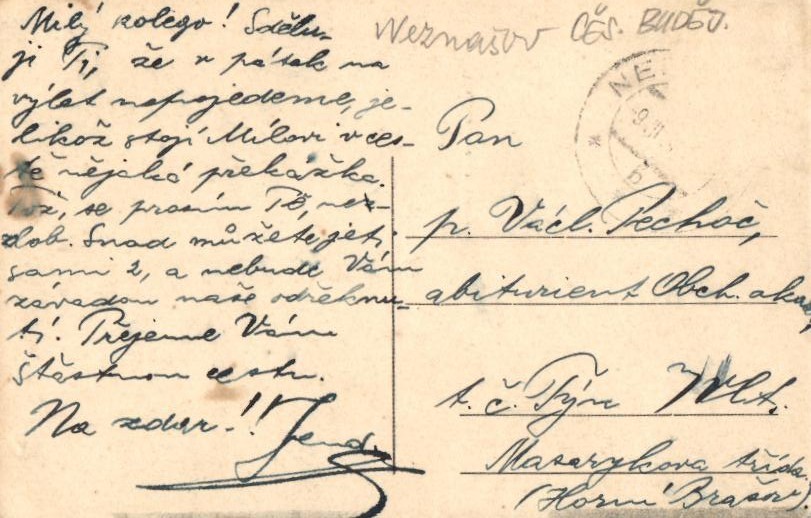 Milý kolego! Sdělu-
ji Ti, že v pátek na
výlet nepojedeme, je-
likož stojí Mílovi v ces-
tě nějaká překážka.
Tož, se prosím Tě, nez-
zlob. Snad můžete jeti
sami 2, a nebude Vám
závadou naše odřeknu-
tí. Přejeme Vám
šťastnou cestu.
Na zdar!! Jenda
Neznašov ČES. BUDĚJ.
NE
Pan
p. Václ. Pechoč,
abiturient Obch. akad.,
t. č. Týn Vlt.
Masarykova třída
(Horní Brašov)